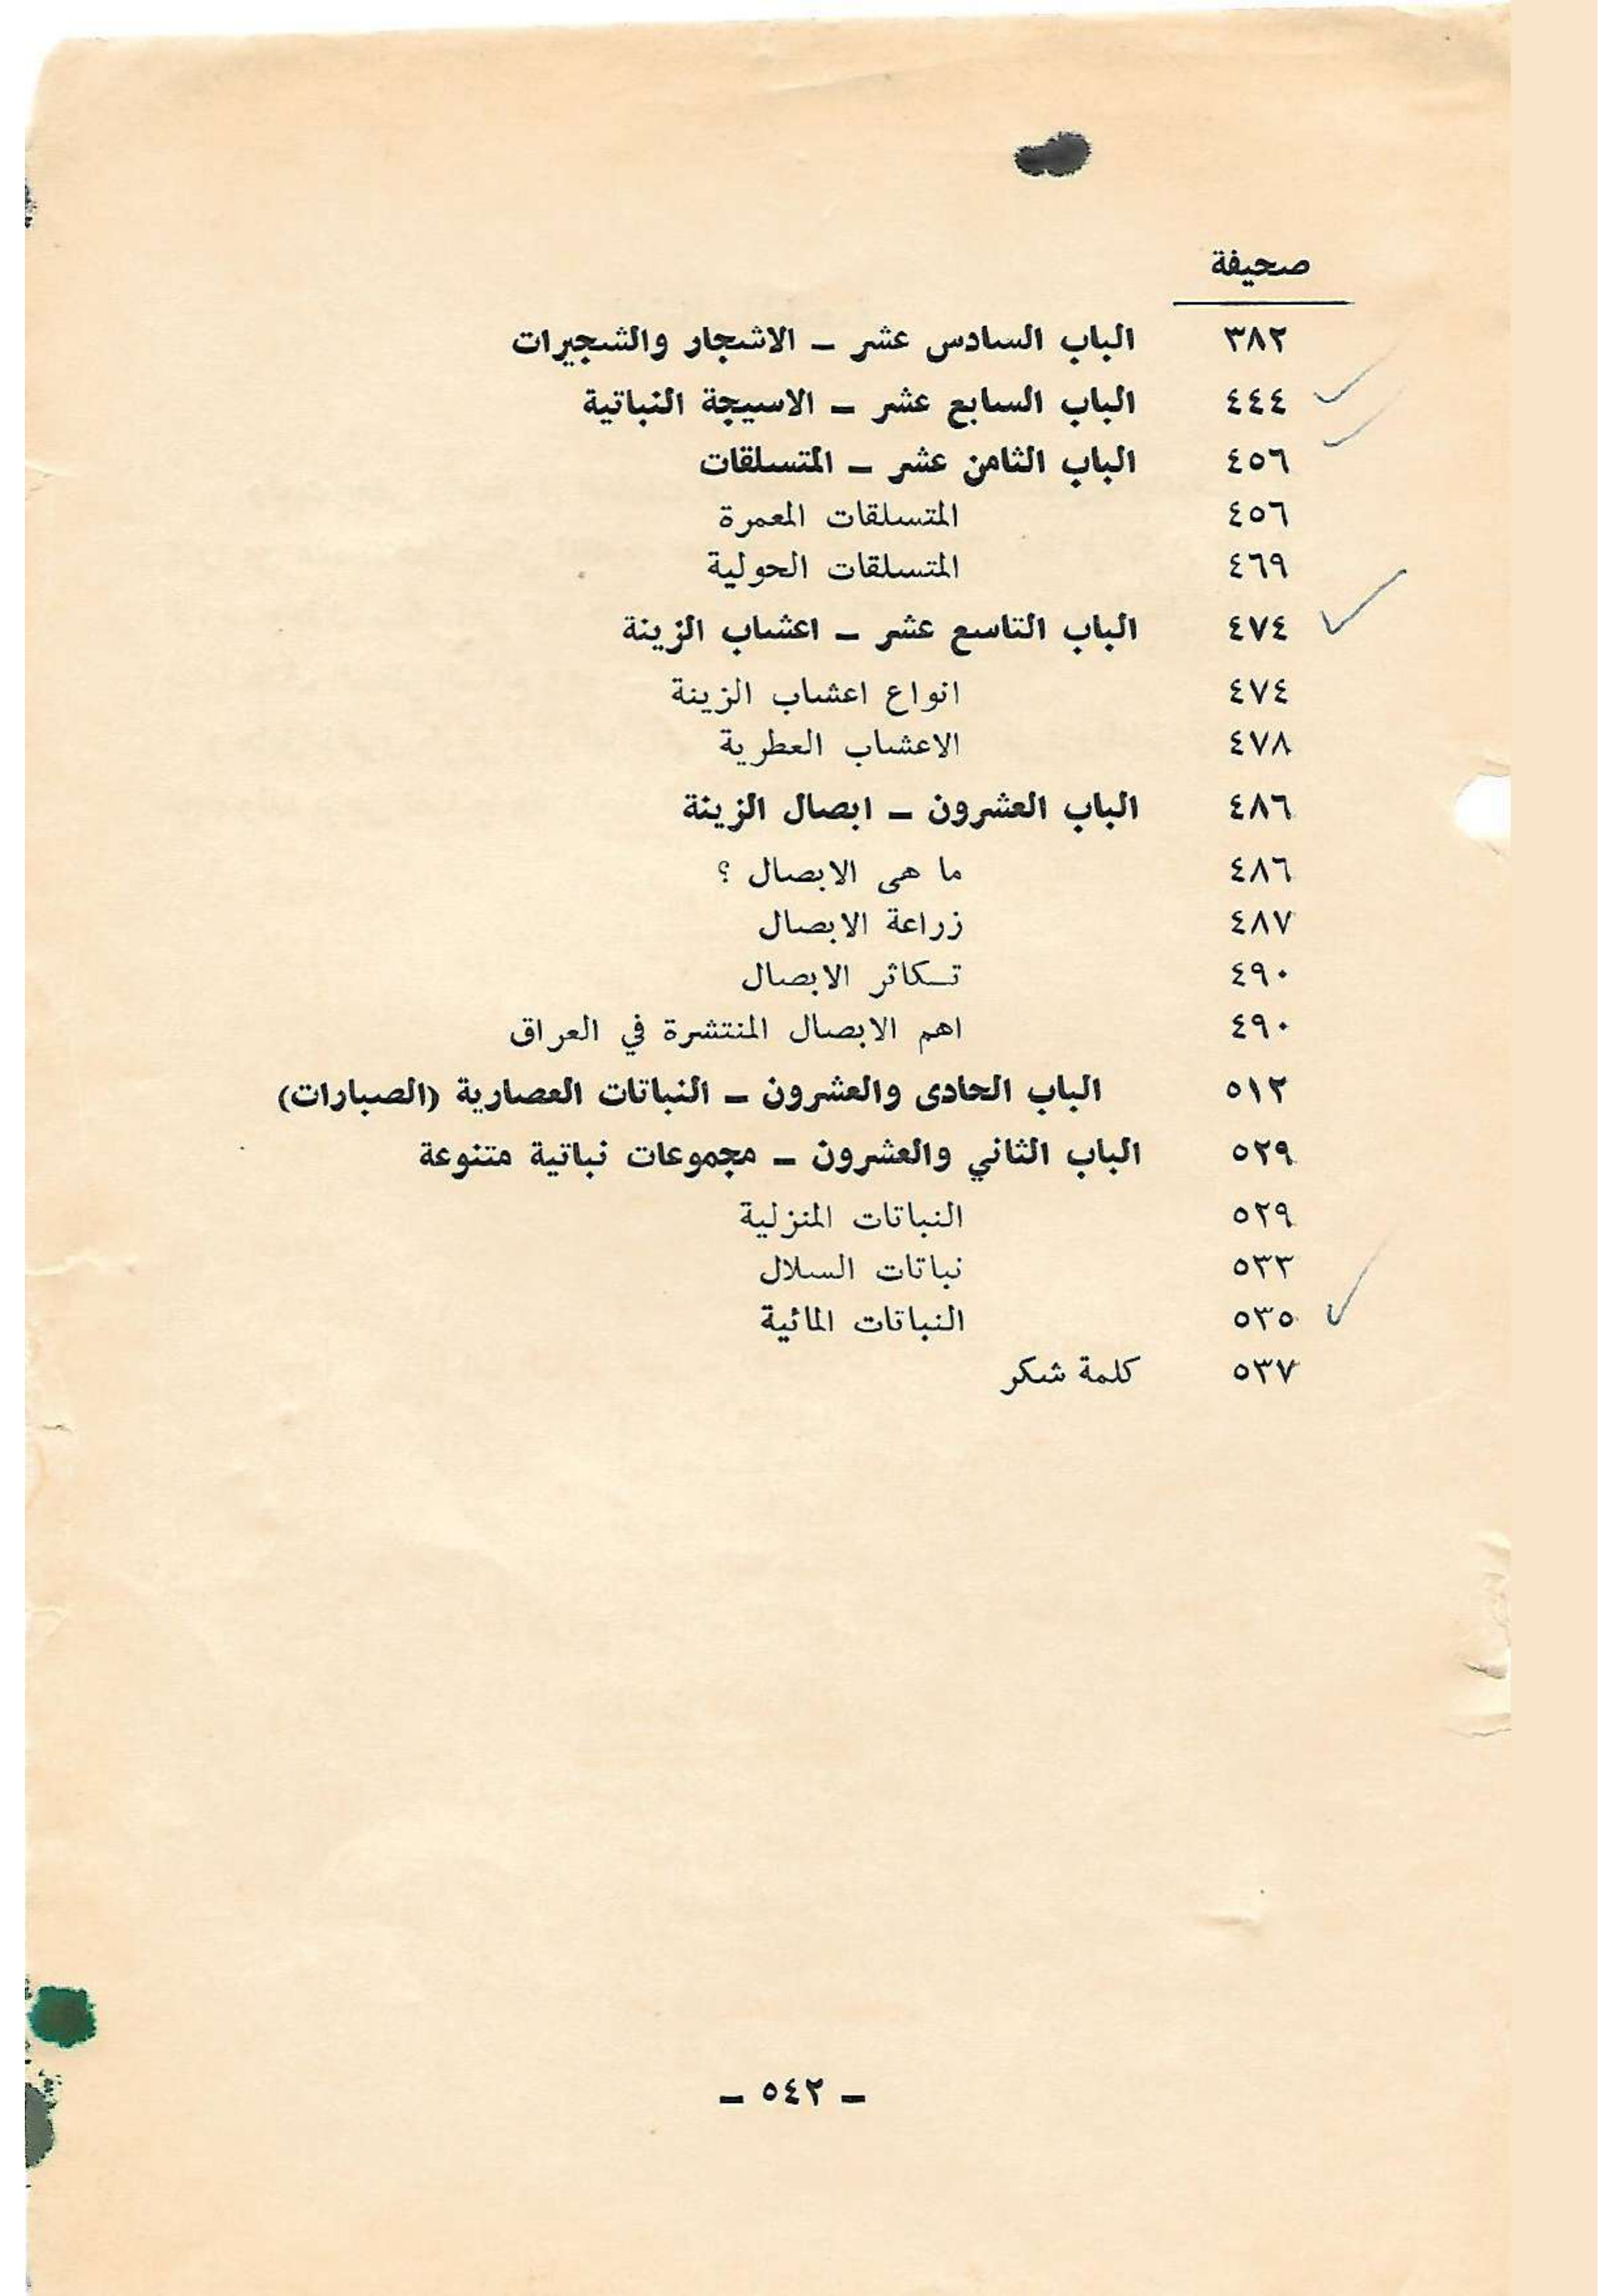 صحيفة
٣٨٢ الباب السادس عشر – الاشجار والشجيرات
٤٤٤ الباب السابع عشر – الاسيجة النباتية
٤٥٦ الباب الثامن عشر – المتسلقات
٤٥٦ المتسلقات المعمرة
٤٦٩ المتسلقات الحولية
٤٧٤ الباب التاسع عشر – اعشاب الزينة
٤٧٤ انواع اعشاب الزينة
٤٧٨ الاعشاب العطرية
٤٨٦ الباب العشرون – ابصال الزينة
٤٨٦ ما هى الابصال ؟
٤٨٧ زراعة الابصال
٤٩٠ تـكاثر الابصال
٤٩٠ اهم الابصال المنتشرة في العراق
٥١٢ الباب الحادى والعشرون – النباتات العصارية (الصبارات)
٥٢٩ الباب الثاني والعشرون – مجموعات نباتية متنوعة
٥٢٩ النباتات المنزلية
٥٣٣ نباتات السلال
٥٣٥ النباتات المائية
٥٣٧ كلمة شكر
– ٥٤٢ –